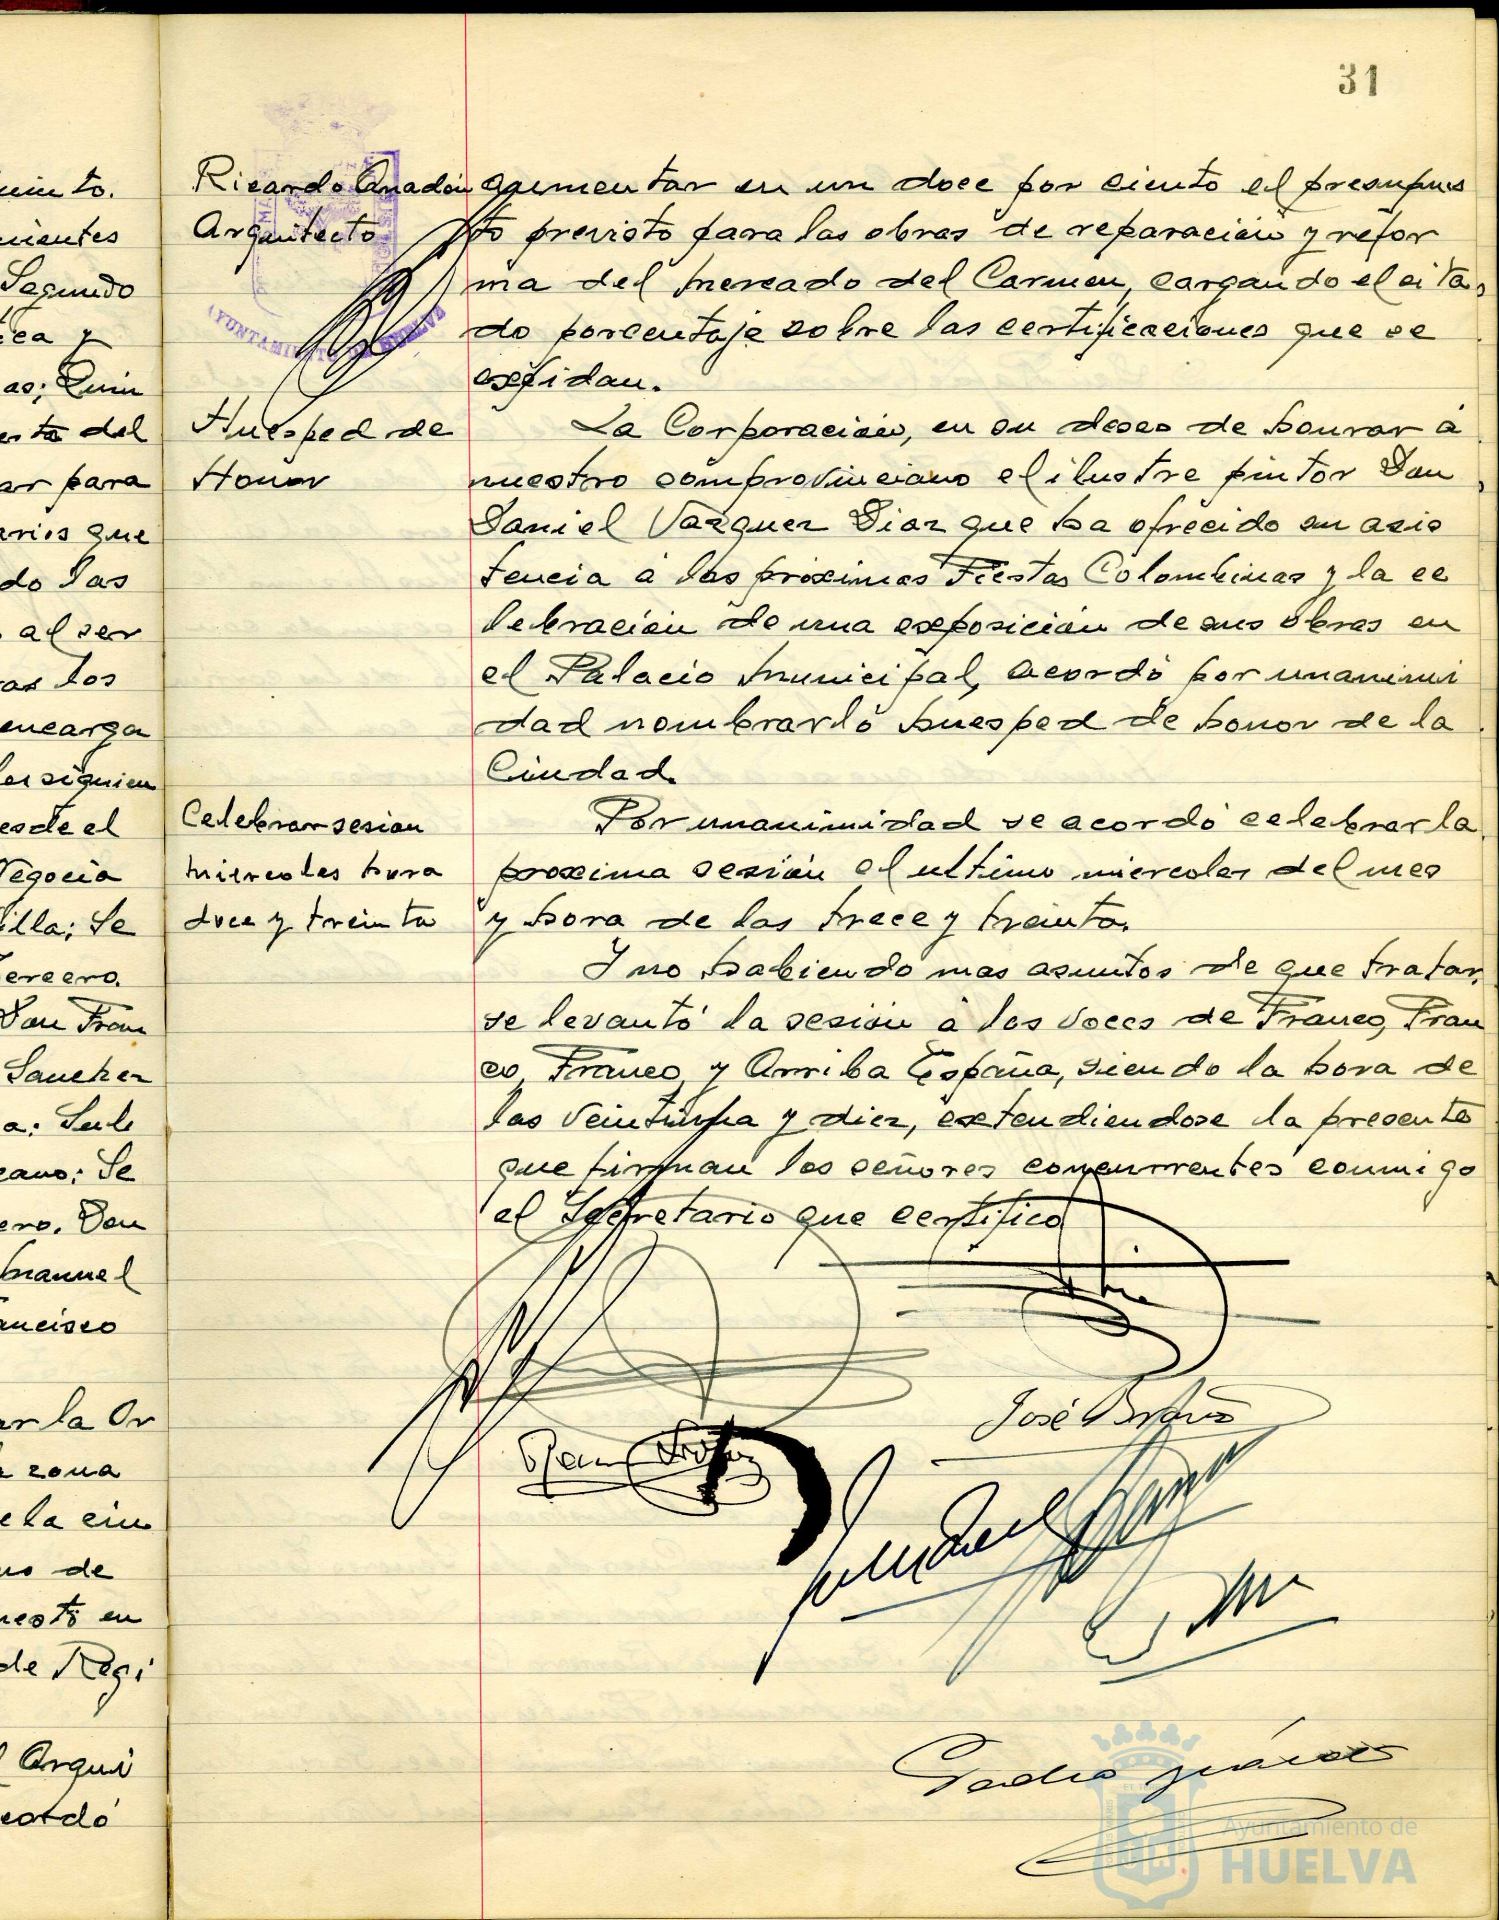 31
uiento.
nientes
Segundo
ica y
as; Quin
esta del
ar para
arios que
do las
al ser
ras los
encarga
los siguien
esde el
Negocia
illa; Se
Tercero.
Don Fran
Sanchez
a; Sub
cano; Se
ero. Don
Manuel
ancisco
ar la Or
zona
e la ciu
us de
uesto en
de Regi
l Arqui
cordó
Ricardo Anadón
Arquitecto
AYUNTAMIENTO DE HUELVA
Huesped de
Honor
Celebrar sesion
miercoles hora
doce y treinta
aumentar en un doce por ciento el presupues
to previsto para las obras de reparación y refor
ma del Mercado del Carmen, cargando el cita
do porcentaje sobre las certificaciones que se
expidan.
La Corporación, en su deseo de honrar á
nuestro comprovinciano el ilustre pintor Don
Daniel Vazquez Diaz que ha ofrecido su asis
tencia á las próximas Fiestas Colombinas y la ce
lebración de una exposición de sus obras en
el Palacio Municipal, acordó por unanimi
dad nombrarló huesped de honor de la
Ciudad.
Por unanimidad se acordó celebrar la
proxima sesión el ultimo miercoles del mes
y hora de las trece y treinta.
Y no habiendo mas asuntos de que tratar,
se levantó la sesión á los voces de Franco, Fran
co, Franco, y Arriba España, siendo la hora de
las veintiuna y diez, extendiendose la presente
que firman los señores concurrentes conmigo
el Secretario que certifico
José Bravo
Ayuntamiento de
HUELVA